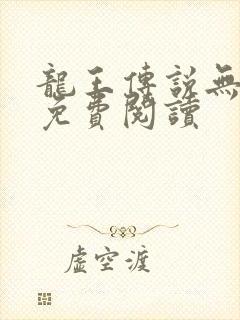 龍王傳說無
免費閱讀
虛空渡